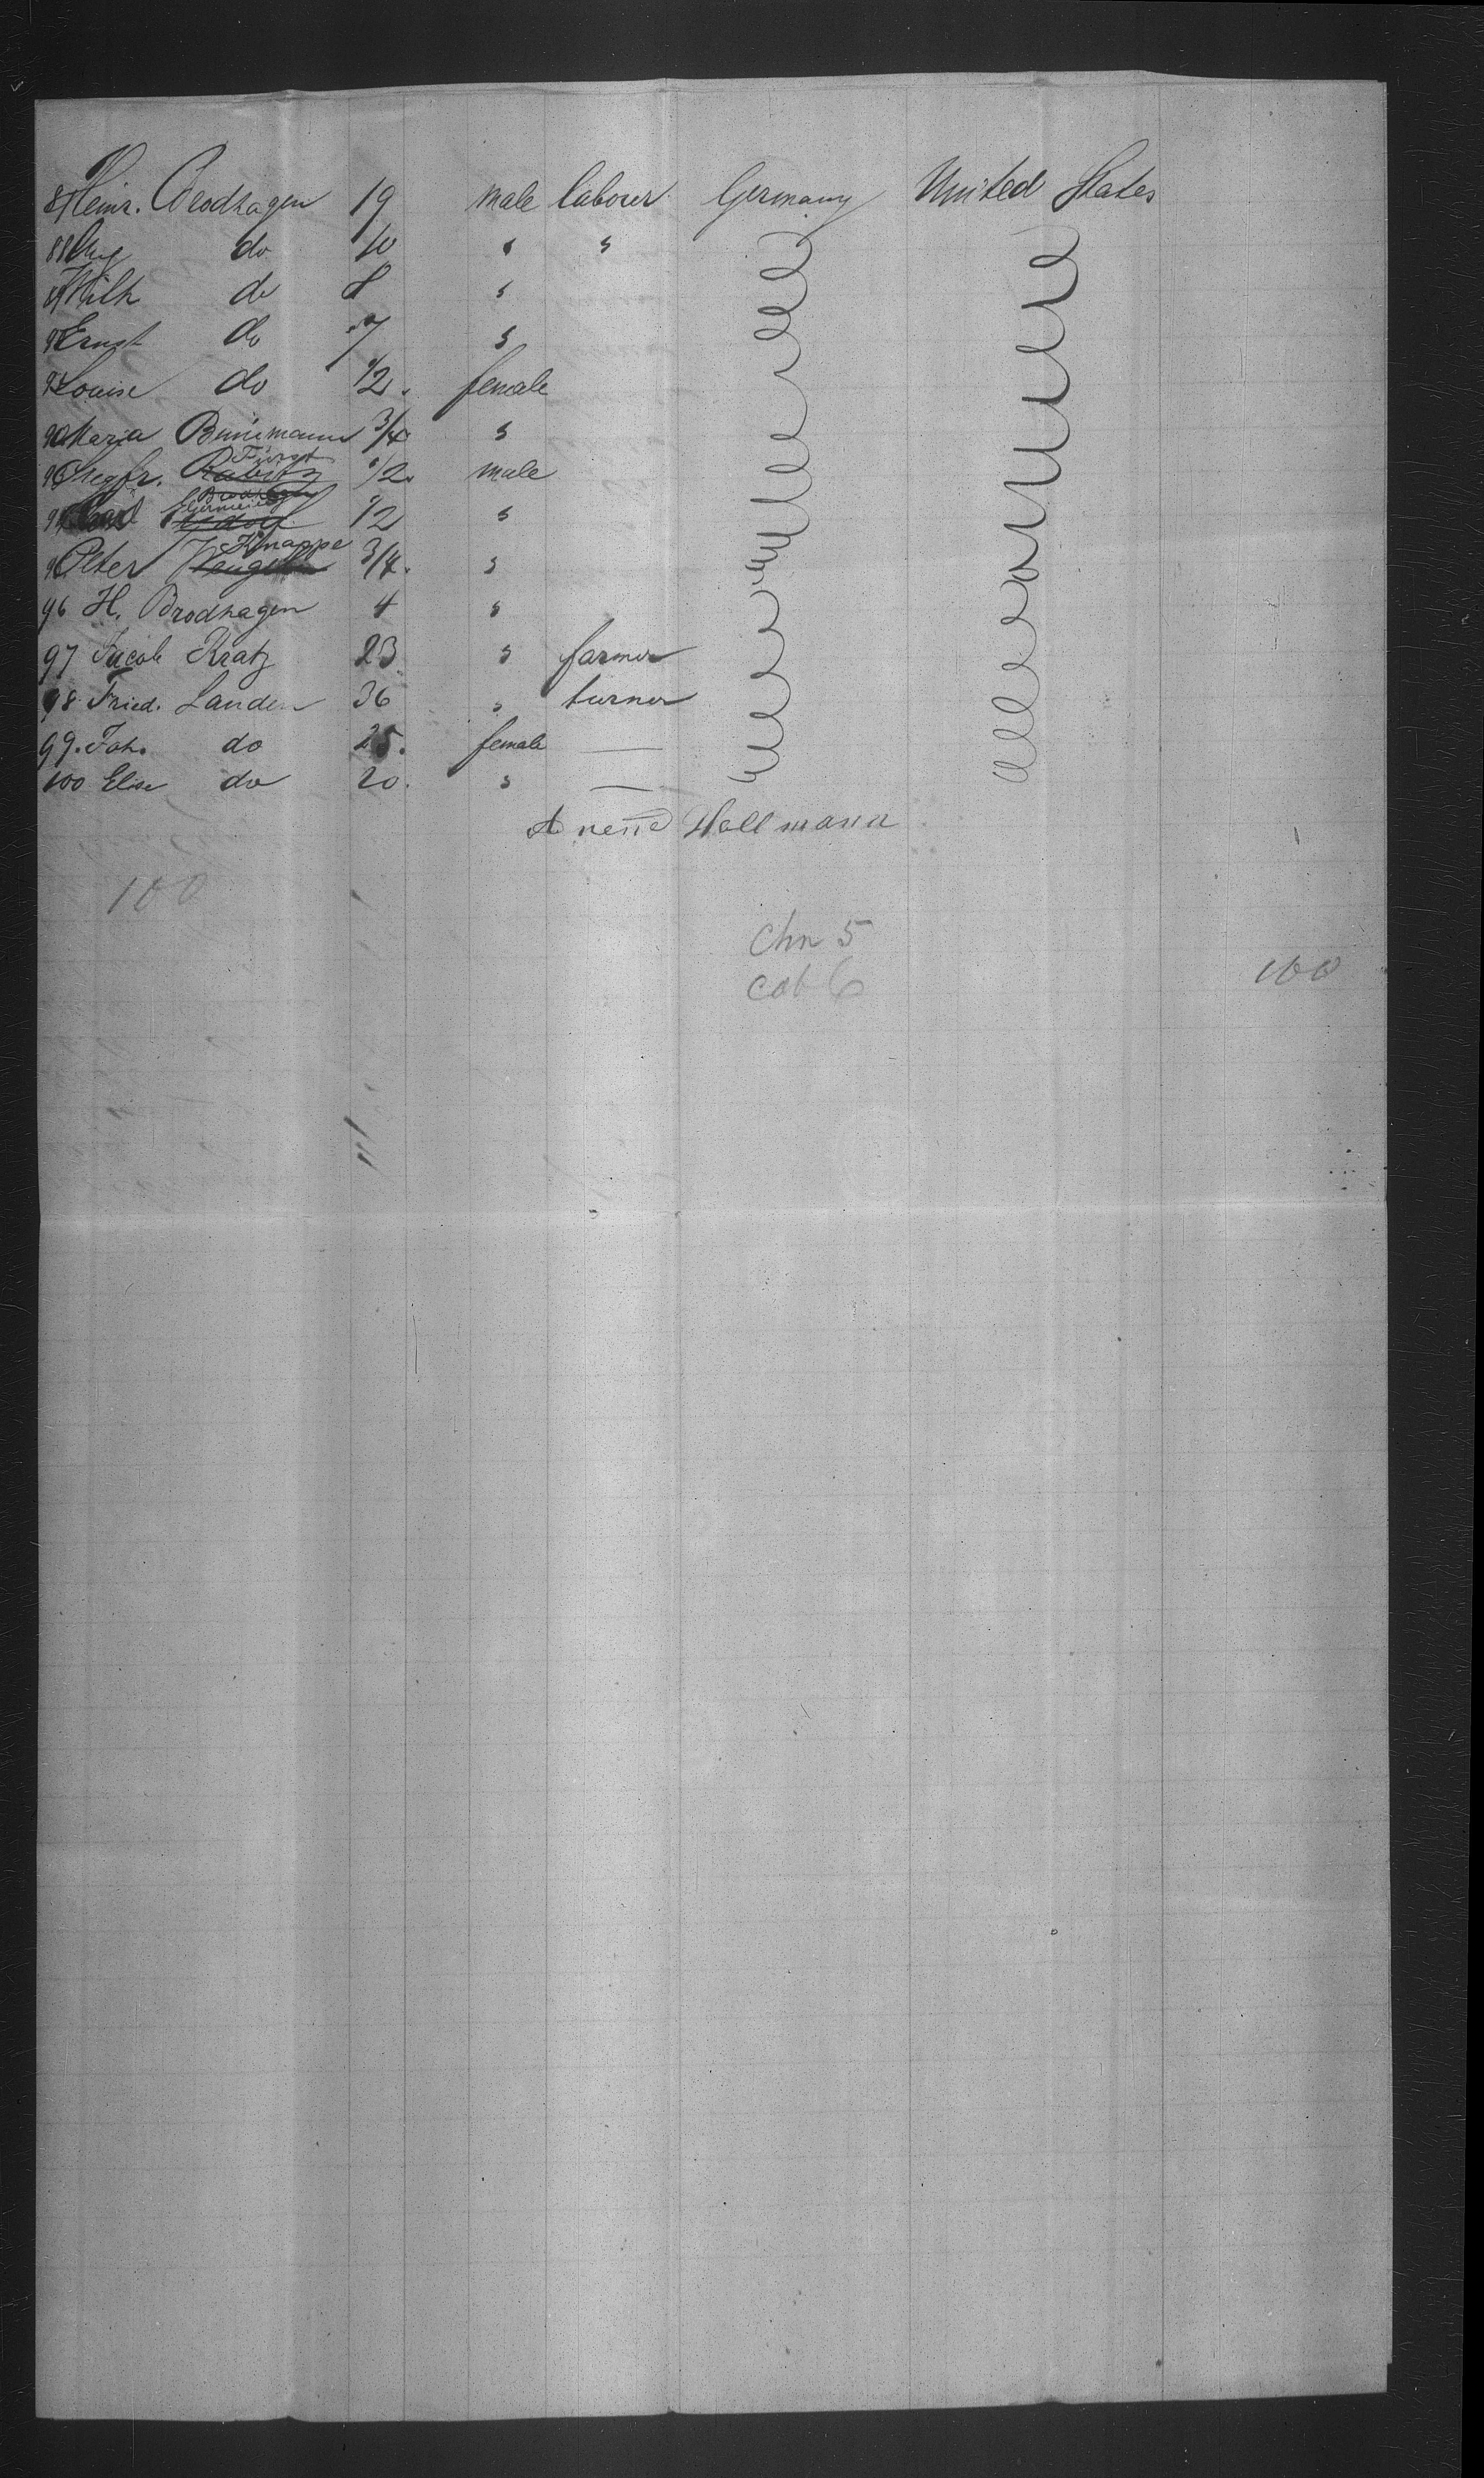 87 Heinr. Brodhagen 19 male labourer Germany United States
88 Aug do 10 " "
89 Wilh do 8 "
90 Ernst do 7 "
91 Louise do 1/2. female
92 Maria Bünemann 3/4 "
Fürst
93 Siegfr. 1/2. male
94 Carl 1/2 "
Knappe
95 Peter 3/4. "
96 H. Brodhagen 4 "
97 Jacob Kratz 23 " farmer
98 Fried. Landen 36 " turner
99. Joh. do 25. female —
100 Elise do 20. " —
Hellmann
100
Chn 5
Cab 6
100